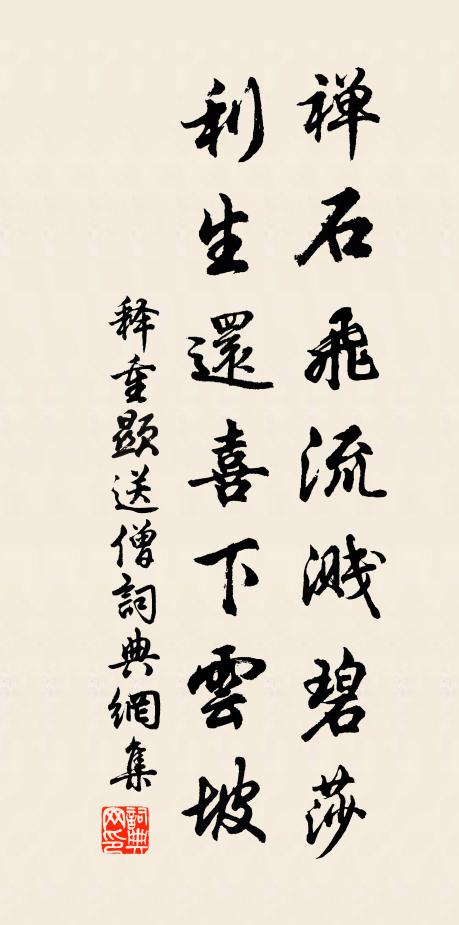 禅石飛流濺碧莎
利生還喜下雲坡
释重顯送僧詞典網集
詞典網印